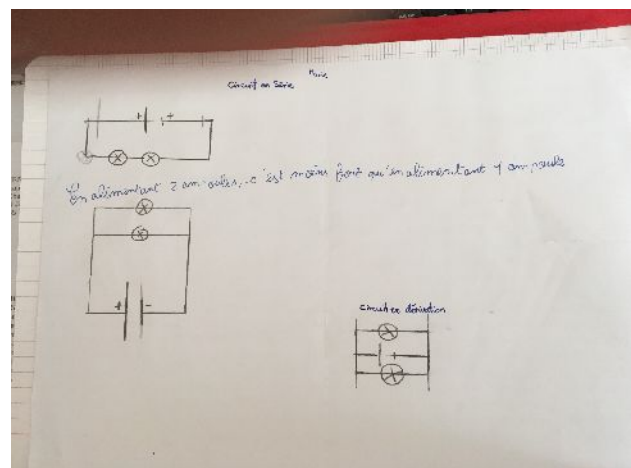 Marie
Circuit en Série
En alimentant 2 ampoules, c'est moins fort qu'en alimentant 1 ampoule
Circuit en dérivation